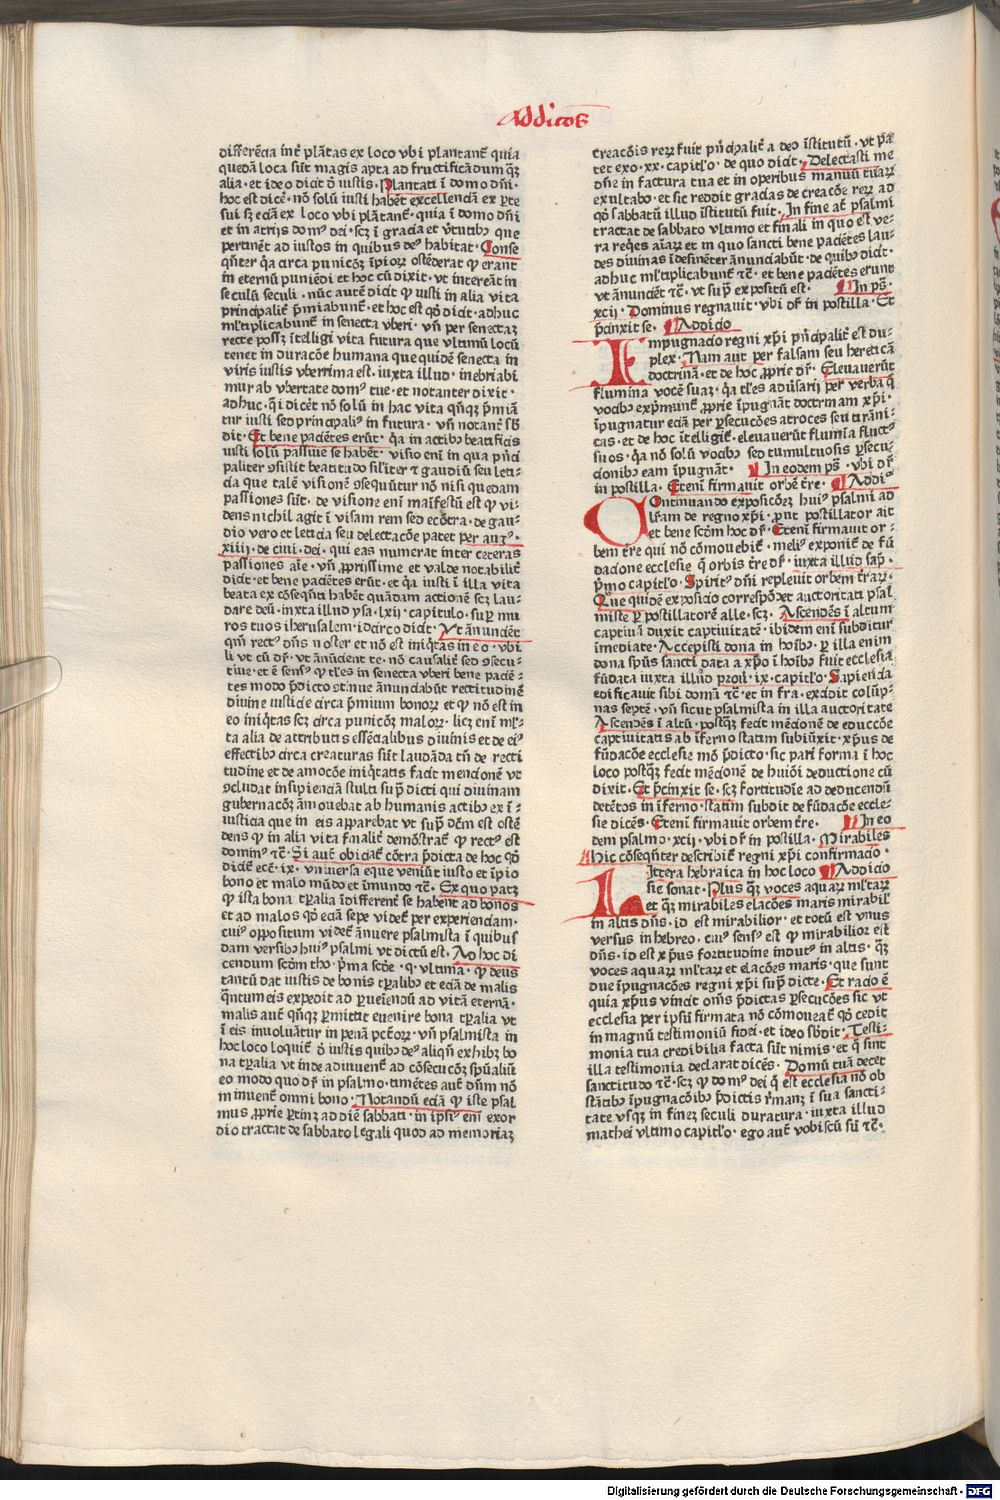 Addicões
differēcia int̄ plātas ex loco vbi plantant̄ quia
quedā loca sūt magis apta ad fructificādum qꝫ
alia · et ideo dicit ð iustis · Plantati ī domo dñi ·
hoc est dicē · nō solū iusti habēt excellenciā ex ꝑte
sui sꝫ eciā ex loco vbi plātant̄ · quia ī domo dñi
et in atrijs domꝰ dei · scꝫ ī gracia et v̄tutibꝫ que
pertinēt ad iustos in quibus deꝰ habitat · Conse
qn̄ter q̄a circa punicōꝫ īpiorꝝ ostēderat ꝙ erant
in eternū puniēdi et hoc cū dixit · vt intereāt in
seculū seculi · nūc autē dicit ꝙ iusti in alia vita
principalit̄ p̄miabunt̄ · et hoc est qð dicit · adhuc
ml̄tiplicabunt̄ in senecta vberi · vn̄ per senectaꝫ
recte possꝫ ītelligi vita futura que vltimū locū
tenet in duracōe humana que quidē senecta in
viris iustis vberrima est · iuxta illud · inebriabi
mur ab vbertate domꝰ tue · et notanter dixit ·
adhuc · q̄i dicēt nō solū in hac vita qn̄qꝫ p̄miā
tur iusti sed principaliꝰ in futura · vn̄ notant̄ sb̄
dit · Et bene paciētes erūt · q̄a in actibꝫ beatificis
iusti solū passiue se habēt · visio eni in qua p̄nci
paliter ꝯsistit beatitudo sil̄iter ⁊ gaudiū seu leti⸗
cia que talē visionē ꝯsequūtur nō nisi quedam
passiones sūt · de visione eni maīfestū est ꝙ vi⸗
dens nichil agit ī visam rem sed ecōtra · de gau⸗
dio vero et leticia seu delectacōe patet per augꝰ ·
xiiij · de ciui · dei · qui eas numerat inter ceteras
passiones aīe · vn̄ ꝓprijssime et valde notabilit̄
dicit · et bene paciētes erūt · et q̄a iusti ī illa vita
beata ex cōseqn̄ti habēt quādam actionē scꝫ lau⸗
dare deū · iuxta illud ysa · lxij · capitulo · suꝑ mu
ros tuos iherusalem · idcirco dicit · Vt ānunciēt
qn̄ rectꝰ dn̄s noster et nō est iniq̄tas in eo · vbi
li vt cū dr̄ · vt ānūcient te · nō causalit̄ sed ꝯsecu⸗
tiue · et ē sensꝰ ꝙ tl̄es in senecta vberi bene paciē⸗
tes modo p̄dicto ꝯtinue ānunciabūt rectitudinē
diuine iusticie circa p̄mium bonorꝝ et ꝙ nō est in
eo iniq̄tas scꝫ circa punicōꝫ malorꝝ · licꝫ eni ml̄⸗
ta alia de attributis essēcialibus diuinis et de eiꝰ
effectibꝫ circa creaturas sūt laudāda tn̄ de recti
tudine et de amocōe iniq̄tatis facit mencionē vt
ꝯcludat insipienciā stulti suꝑ dicti qui diuinam
gubernacōꝫ āmouebat ab humanis actibꝫ ex ī⸗
iusticia que in eis apparebat vt sup̄ dc̄m est ostē
dens ꝙ in alia vita fīnalit̄ demōstrat̄ ꝙ rectꝰ est
dominꝰ ⁊c̄ · Si aut̄ obiciat̄ cōtra p̄dicta de hoc qð
dicit̄ ecc̄ · ix · vniuersa eque veniūt iusto et īpio
bono et malo mūdo et īmundo ⁊c̄ · Ex quo patꝫ
ꝙ ista bona tꝑalia īdifferent̄ se habent ad bonos
et ad malos qð eciā sepe videt̄ per experienciam ·
cuiꝰ oppositum videt̄ ānuere psalmista ī quibus
dam versibꝫ huiꝰ psalmi vt dictū est · Ad hoc di
cendum scd̄m tho · p̄ma scd̄e · q · vltima · ꝙ deus
tantū dat iustis de bonis tꝑalibꝫ et eciā de malis
qn̄tum eis expedit ad ꝑueniendū ad vitā eternā ·
malis aut̄ qn̄qꝫ ꝑmittit euenire bona tꝑalia vt
ī eis inuoluātur in penā pctōrꝝ · vn̄ psalmista in
hoc loco loquit̄ ð iustis quibꝫ deꝰ aliqn̄ exhibꝫ bo
na tꝑalia vt inde adiuuent̄ ad cōsecucōꝫ spūaliū
eo modo quo dr̄ in psalmo · timētes aut̄ dn̄m nō
minuent̄ omni bono · Notandū eciā ꝙ iste psal
mus ꝓprie ꝑtinꝫ ad diē sabbati · in ipsiꝰ eni exor
dio tractat de sabbato legali quod ad memoriaꝫ
creacōis rerꝝ fuit p̄ncipalit̄ a deo īstitutū · vt pꝫ
tet exo · xx · capitl̓o · de quo dicit · Delectasti me
dn̄e in factura tua et in operibus manuū tuarꝝ
exultabo · et sic reddit gracias de creacōe rerꝝ ad
qð sabbatū illud īstitutū fuit · In fine at̄ psalmi
tractat de sabbato vltimo et finali in quo est ve⸗
ra req̄es aīarꝝ et in quo sancti bene paciētes lau⸗
des diuinas īdesinēter ānunciabūt · de quibꝫ dicit ·
adhuc ml̄tiplicabunt̄ ⁊c̄ · et bene paciētes erunt
vt ānunciēt ⁊c̄ · vt sup̄ expositū est · ¶ In pꝫ ·
xcij · Dominus regnauit · vbi dr̄ in postilla · Et
p̄cinxit se · ¶ Addicio
Impugnacio regni xp̄i p̄ncipalit̄ est du⸗
plex · Nam aut per falsam seu hereticā
doctrinā · et de hoc ꝓprie dr̄ · Eleuauerūt
flumina vocē suaꝫ · q̄a tl̄es adūsarij per verba q̄
vocibꝫ exp̄munt̄ ꝓprie īpugnāt doctrinam xp̄i ·
īpugnatur eciā per ꝑsecucōes atroces seu tirāni⸗
cas · et de hoc ītelligit̄ · eleuauerūt flumīa fluctꝰ
suos · q̄a nō solū vocibꝫ sed tumultuosis ꝑsecu⸗
cionibꝫ eam īpugnāt · ¶ In eodem pꝫ · vbi dr̄
in postilla · Eteni firmauit orbē t̄re · ¶ Addiꝰ
Continuando exposicōeꝫ huiꝰ psalmi ad
lr̄am de regno xp̄i · prout postillator ait
et bene scd̄m hoc dr̄ · Eteni firmauit or⸗
bem t̄re qui nō cōmouebit̄ · meliꝰ exponit̄ de fū
dacione ecclesie q̄ orbis t̄re dr̄ · iuxta illud sap̄ ·
p̄mo capitl̓o · Spiritꝰ dn̄i repleuit orbem t̄rarꝝ ·
Que quidē exposicio correspōdet auctoritati psal
miste ꝑ postillatorē alle · scꝫ · Ascendēs ī altum
captiuā duxit captiuitatē · ibidem eni subditur
īmediate · Accepisti dona in hoībꝫ · ꝑ illa enim
dona spūs sancti data a xp̄o ī hoībꝫ fuit ecclesia
fūdata iuxta illud ꝓuer · ix · capitl̓o · Sapiencia
edificauit sibi domū ⁊c̄ · et in fra · excidit colūp⸗
nas septē · vn̄ sicut psalmista in illa auctoritate
Ascendēs ī altū · postqꝫ fecit mēcionē de educcōe
captiuitatis ab īferno statim subiūxit · xp̄us de
fūdacōe ecclesie mō p̄dicto · sic pari forma ī hoc
loco postqꝫ fecit mēcionē de huiōi deductione cū
dixit · Et p̄cinxit se · scꝫ fortitudīe ad deducendū
detētos in īferno · statim subdit de fūdacōe eccle⸗
sie dicēs · Eteni firmauit orbem t̄re · ¶ In eo
dem psalmo · xcij · vbi dr̄ in postilla · Mirabiles
Hic cōseqn̄ter describit̄ regni xp̄i confirmacio ·
Littera hebraica in hoc loco ¶ Addicio
sic sonat · Plus qꝫ voces aquarꝝ ml̄tarꝝ
et qꝫ mirabiles elacōes maris mirabil̓
in altis dn̄s · id est mirabilior · et totū est vnus
versus in hebreo · cuiꝰ sensꝰ est ꝙ mirabilior est
dn̄s · id est xp̄us fortitudine indutꝰ in altis · qꝫ
voces aquarꝝ ml̄tarꝝ et elacōes maris · que sunt
due īpugnacōes regni xp̄i sup̄ dicte · Et racio ē
quia xp̄us vincit om̄s p̄dictas ꝑsecucōes sic vt
ecclesia per ipsū firmata nō cōmoueat̄ qð cedit
in magnū testimoniū fidei · et ideo sb̄dit · Testi⸗
monia tua credibilia facta sūt nimis · et q̄ sint
illa testimonia declarat dicēs · Domū tuā decet
sanctitudo ⁊c̄ · scꝫ ꝙ domꝰ dei q̄ est ecclesia nō ob
stātibꝫ īpugnacōibꝫ p̄dictis r̄manꝫ ī sua sancti⸗
tate vsqꝫ in fineꝫ seculi duratura · iuxta illud
mathei vltimo capitl̓o · ego aut̄ vobiscū sū ⁊c̄ ·
Digitalisierung gefördert durch die Deutsche Forschungsgemeinschaft - DFG